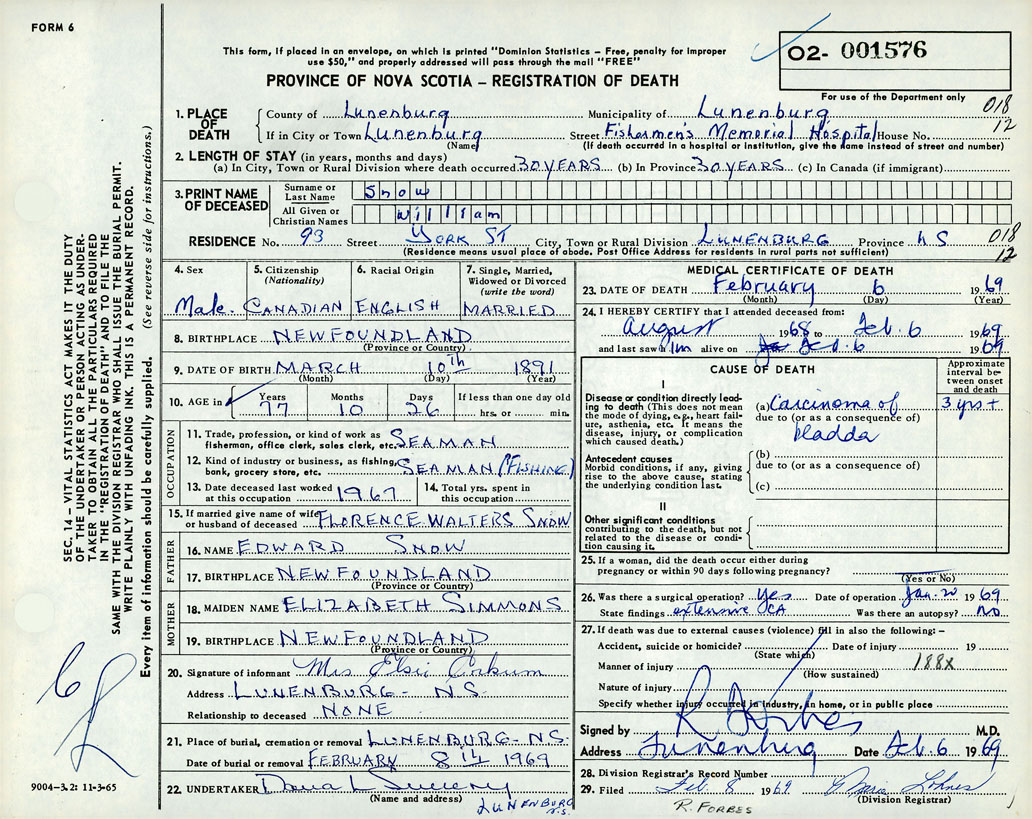 FORM 6
This form, if placed in an envelope, on which is printed "Dominion Statistics – Free, penalty for improper
use $50," and properly addressed will pass through the mail "FREE"
O2- 001576
PROVINCE OF NOVA SCOTIA – REGISTRATION OF DEATH
For use of the Department only
1. PLACE OF DEATH
County of Lunenburg Municipality of Lunenburg 018
If in City or Town Lunenburg Street Fishermen's Memorial Hospital House No. 12
(Name) (If death occurred in a hospital or institution, give the name instead of street and number)
2. LENGTH OF STAY (in years, months and days)
(a) In City, Town or Rural Division where death occurred 30 YEARS (b) In Province 30 YEARS (c) In Canada (if immigrant)
3. PRINT NAME OF DECEASED
Surname or Last Name Snow
All Given or Christian Names William
RESIDENCE No. 93 Street YORK ST City, Town or Rural Division LUNENBURG Province NS 018
(Residence means usual place of abode. Post Office Address for residents in rural parts not sufficient) 12
SEC. 14 – VITAL STATISTICS ACT MAKES IT THE DUTY
OF THE UNDERTAKER OR PERSON ACTING AS UNDER-
TAKER TO OBTAIN ALL THE PARTICULARS REQUIRED
IN THE "REGISTRATION OF DEATH" AND TO FILE THE
SAME WITH THE DIVISION REGISTRAR WHO SHALL ISSUE THE BURIAL PERMIT.
WRITE PLAINLY WITH UNFADING INK. THIS IS A PERMANENT RECORD.
Every item of information should be carefully supplied. (See reverse side for instructions.)
4. Sex
Male
5. Citizenship
(Nationality)
CANADIAN
6. Racial Origin
ENGLISH
7. Single, Married,
Widowed or Divorced
(write the word)
MARRIED
8. BIRTHPLACE NEWFOUNDLAND
(Province or Country)
9. DATE OF BIRTH MARCH 10th 1891
(Month) (Day) (Year)
10. AGE in Years Months Days If less than one day old
77 10 26 hrs. or min.
OCCUPATION
11. Trade, profession, or kind of work as
fisherman, office clerk, sales clerk, etc. SEAMAN
12. Kind of industry or business, as fishing,
bank, grocery store, etc. SEAMAN (FISHING)
13. Date deceased last worked
at this occupation 1967
14. Total yrs. spent in
this occupation
15. If married give name of wife
or husband of deceased FLORENCE WALTERS SNOW
FATHER
16. NAME EDWARD SNOW
17. BIRTHPLACE NEWFOUNDLAND
(Province or Country)
MOTHER
18. MAIDEN NAME ELIZABETH SIMMONS
19. BIRTHPLACE NEWFOUNDLAND
(Province or Country)
20. Signature of informant Mrs Elsie Corkum
Address LUNENBURG - N.S.
Relationship to deceased NONE
21. Place of burial, cremation or removal LUNENBURG - N.S.
Date of burial or removal FEBRUARY 8th 1969
22. UNDERTAKER Dana L Sweeny
(Name and address) LUNENBURG
N.S.
MEDICAL CERTIFICATE OF DEATH
23. DATE OF DEATH February 6 1969
(Month) (Day) (Year)
24. I HEREBY CERTIFY that I attended deceased from:
August 1968 to Feb. 6 1969
and last saw him alive on Feb. 6 1969
CAUSE OF DEATH
Approximate
interval be-
tween onset
and death
I
Disease or condition directly lead-
ing to death (This does not mean
the mode of dying, e.g., heart fail-
ure, asthenia, etc. It means the
disease, injury, or complication
which caused death.)
(a) Carcinoma of 3 yrs +
due to (or as a consequence of)
bladda
Antecedent causes
Morbid conditions, if any, giving
rise to the above cause, stating
the underlying condition last.
(b)
due to (or as a consequence of)
(c)
II
Other significant conditions
contributing to the death, but not
related to the disease or condi-
tion causing it.
25. If a woman, did the death occur either during
pregnancy or within 90 days following pregnancy?
(Yes or No)
26. Was there a surgical operation? Yes Date of operation Jan. 20 1969
State findings extensive CA Was there an autopsy? No
27. If death was due to external causes (violence) fill in also the following: –
Accident, suicide or homicide? Date of injury 19
(State which)
Manner of injury 188X
(How sustained)
Nature of injury
Specify whether injury occurred in industry, in home, or in public place
Signed by R Forbes M.D.
Address Lunenburg Date Feb. 6 1969
28. Division Registrar's Record Number
29. Filed Feb. 8 1969 Lohnes
(Division Registrar)
R. FORBES
9004-3.2: 11-3-65